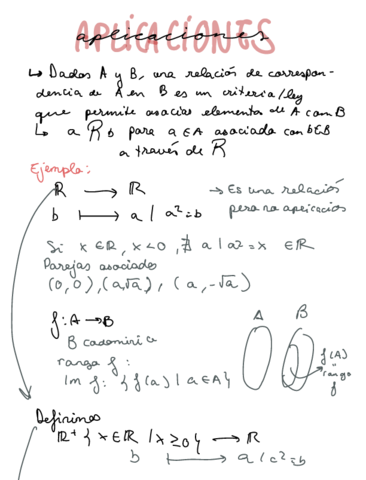 APLICACIONES
aplicaciones
↳ Dados A y B, una relación de correspon-
dencia de A en B es un criterio/ley
que permite asociar elementos de A con B
↳ a R b para a ∈ A asociada con b ∈ B
a través de R
Ejemplo:
ℝ → ℝ → Es una relación
b ↦ a / a² = b pero no aplicación
Si x ∈ ℝ, x < 0, ∄ a / a² = x ∈ ℝ
Parejas asociadas
(0,0), (a, √a), (a, -√a)
f: A → B
A B
B codominio
rango f:
Im f: { f(a) / a ∈ A }
f(A)
=
rango
f
Definimos
ℝ⁺ { x ∈ ℝ / x ≥ 0 } → ℝ
b ↦ a / a² = b